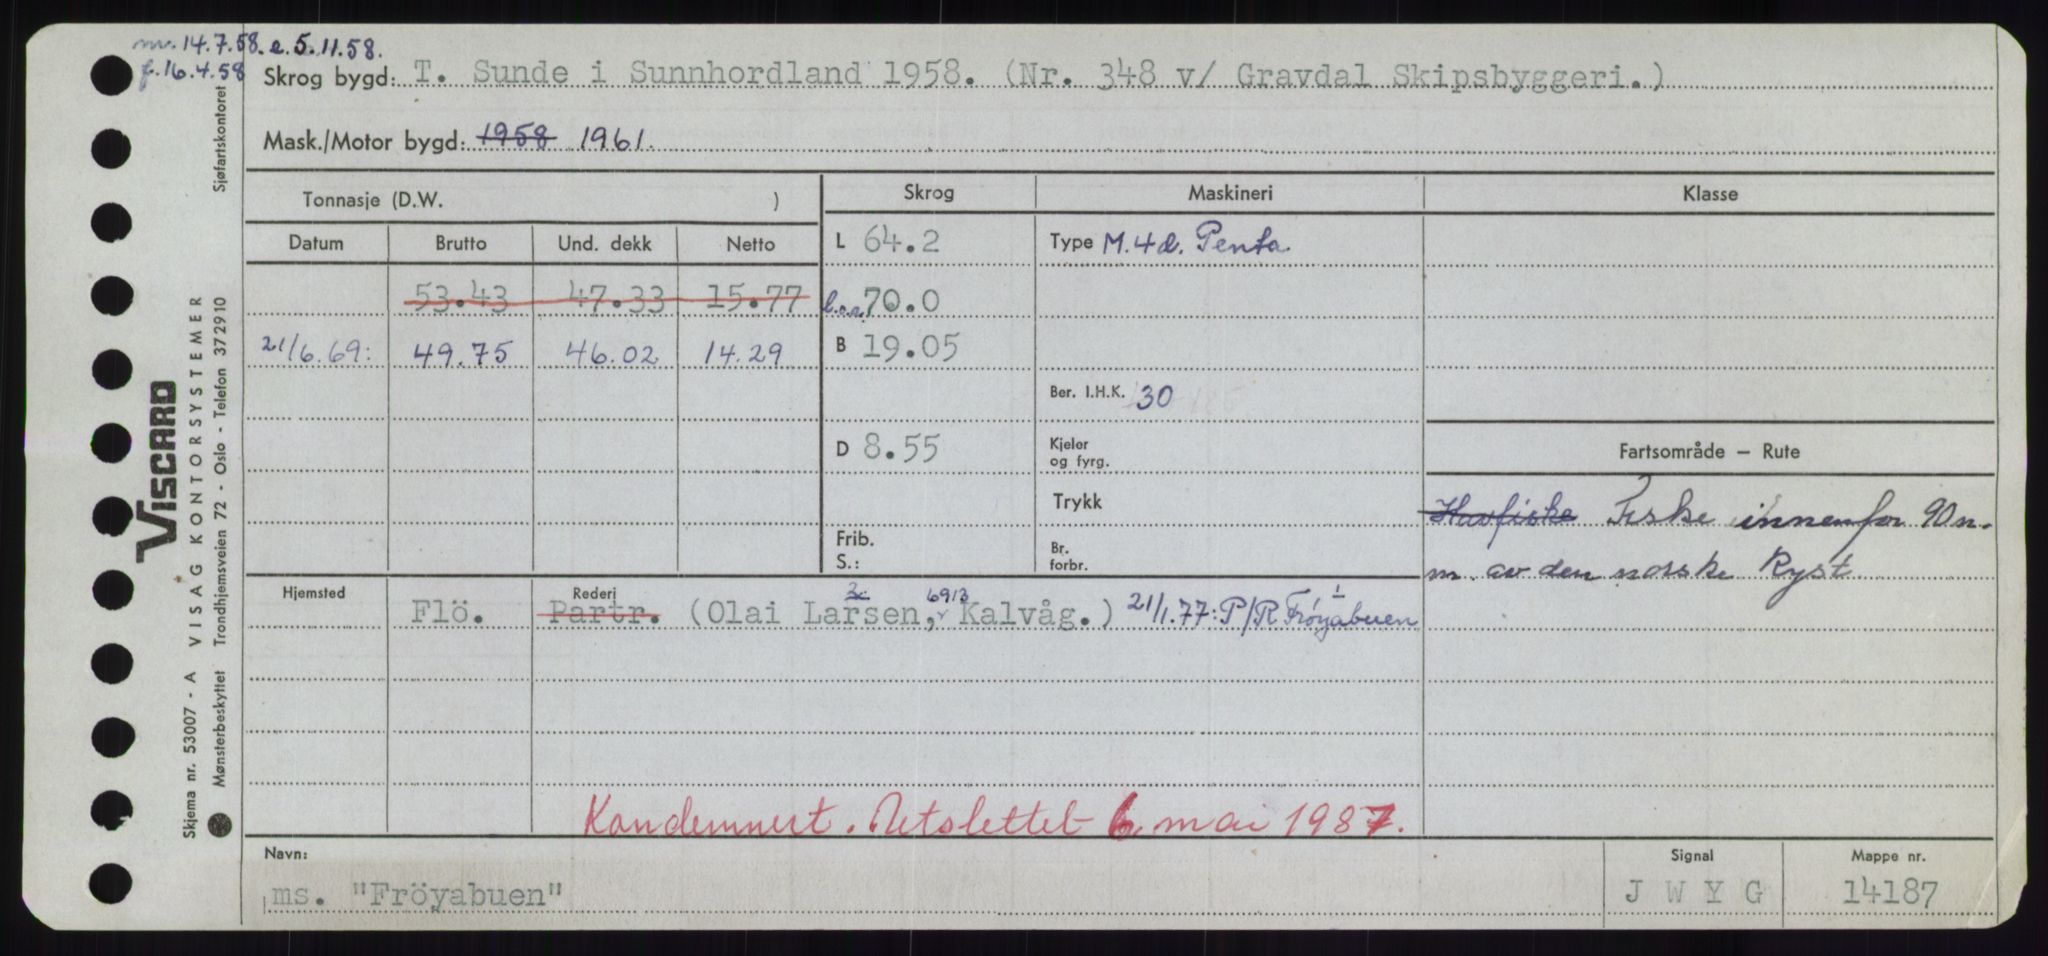 mr. 14.7.58. e. 5.11.58.
f. 16.4.58
Skrog bygd: T. Sunde i Sunnhordland 1958. (Nr. 348 v/ Gravdal Skipsbyggeri.)
Mask./Motor bygd: 1958 1961.
Tonnasje (D.W. )
Skrog Maskineri Klasse
Datum Brutto Und. dekk Netto
L 64.2 Type M. 4 d. Penta
53.43 47.33 15.77 l.o.a. 70.0
21/6.69: 49.75 46.02 14.29 B 19.05
Ber. I.H.K. 30
D 8.55 Kjeler
og fyrg.
Fartsområde – Rute
Trykk
Havfiske Fiske innenfor 90 n.
m. av den norske Kyst
Frib.
S.:
Br.
forbr.
Hjemsted Rederi
Flö. Partr. (Olai Larsen, 6913 Kalvåg.) 21/1.77: P/R Frøyabuen
Kondemnert. Utslettet 6 mai 1987.
Navn: Signal Mappe nr.
ms. "Fröyabuen" J W Y G 14187
VISCARD
Skjema nr. 53007 - A VISAG KONTORSYSTEMER
Mønsterbeskyttet Trondhjemsveien 72 - Oslo - Telefon 372910 Sjøfartskontoret